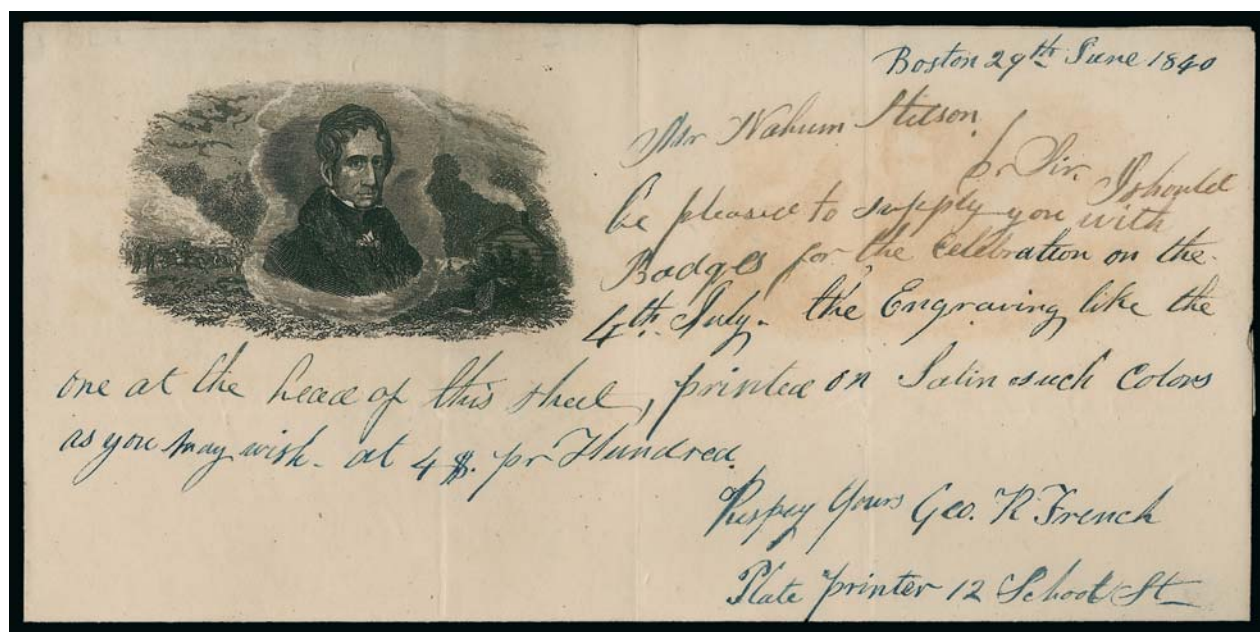 Boston 29th June 1840
Mr Nahum Stetson
Dr Sir. I should
be pleased to supply you with
Badges for the Celebration on the
4th July. the Engraving like the
one at the head of this sheet, printed on Satin such Colors
as you may wish. at 4 $. pr Hundred.
Respey Yours Geo. R French
Plate printer 12 School St